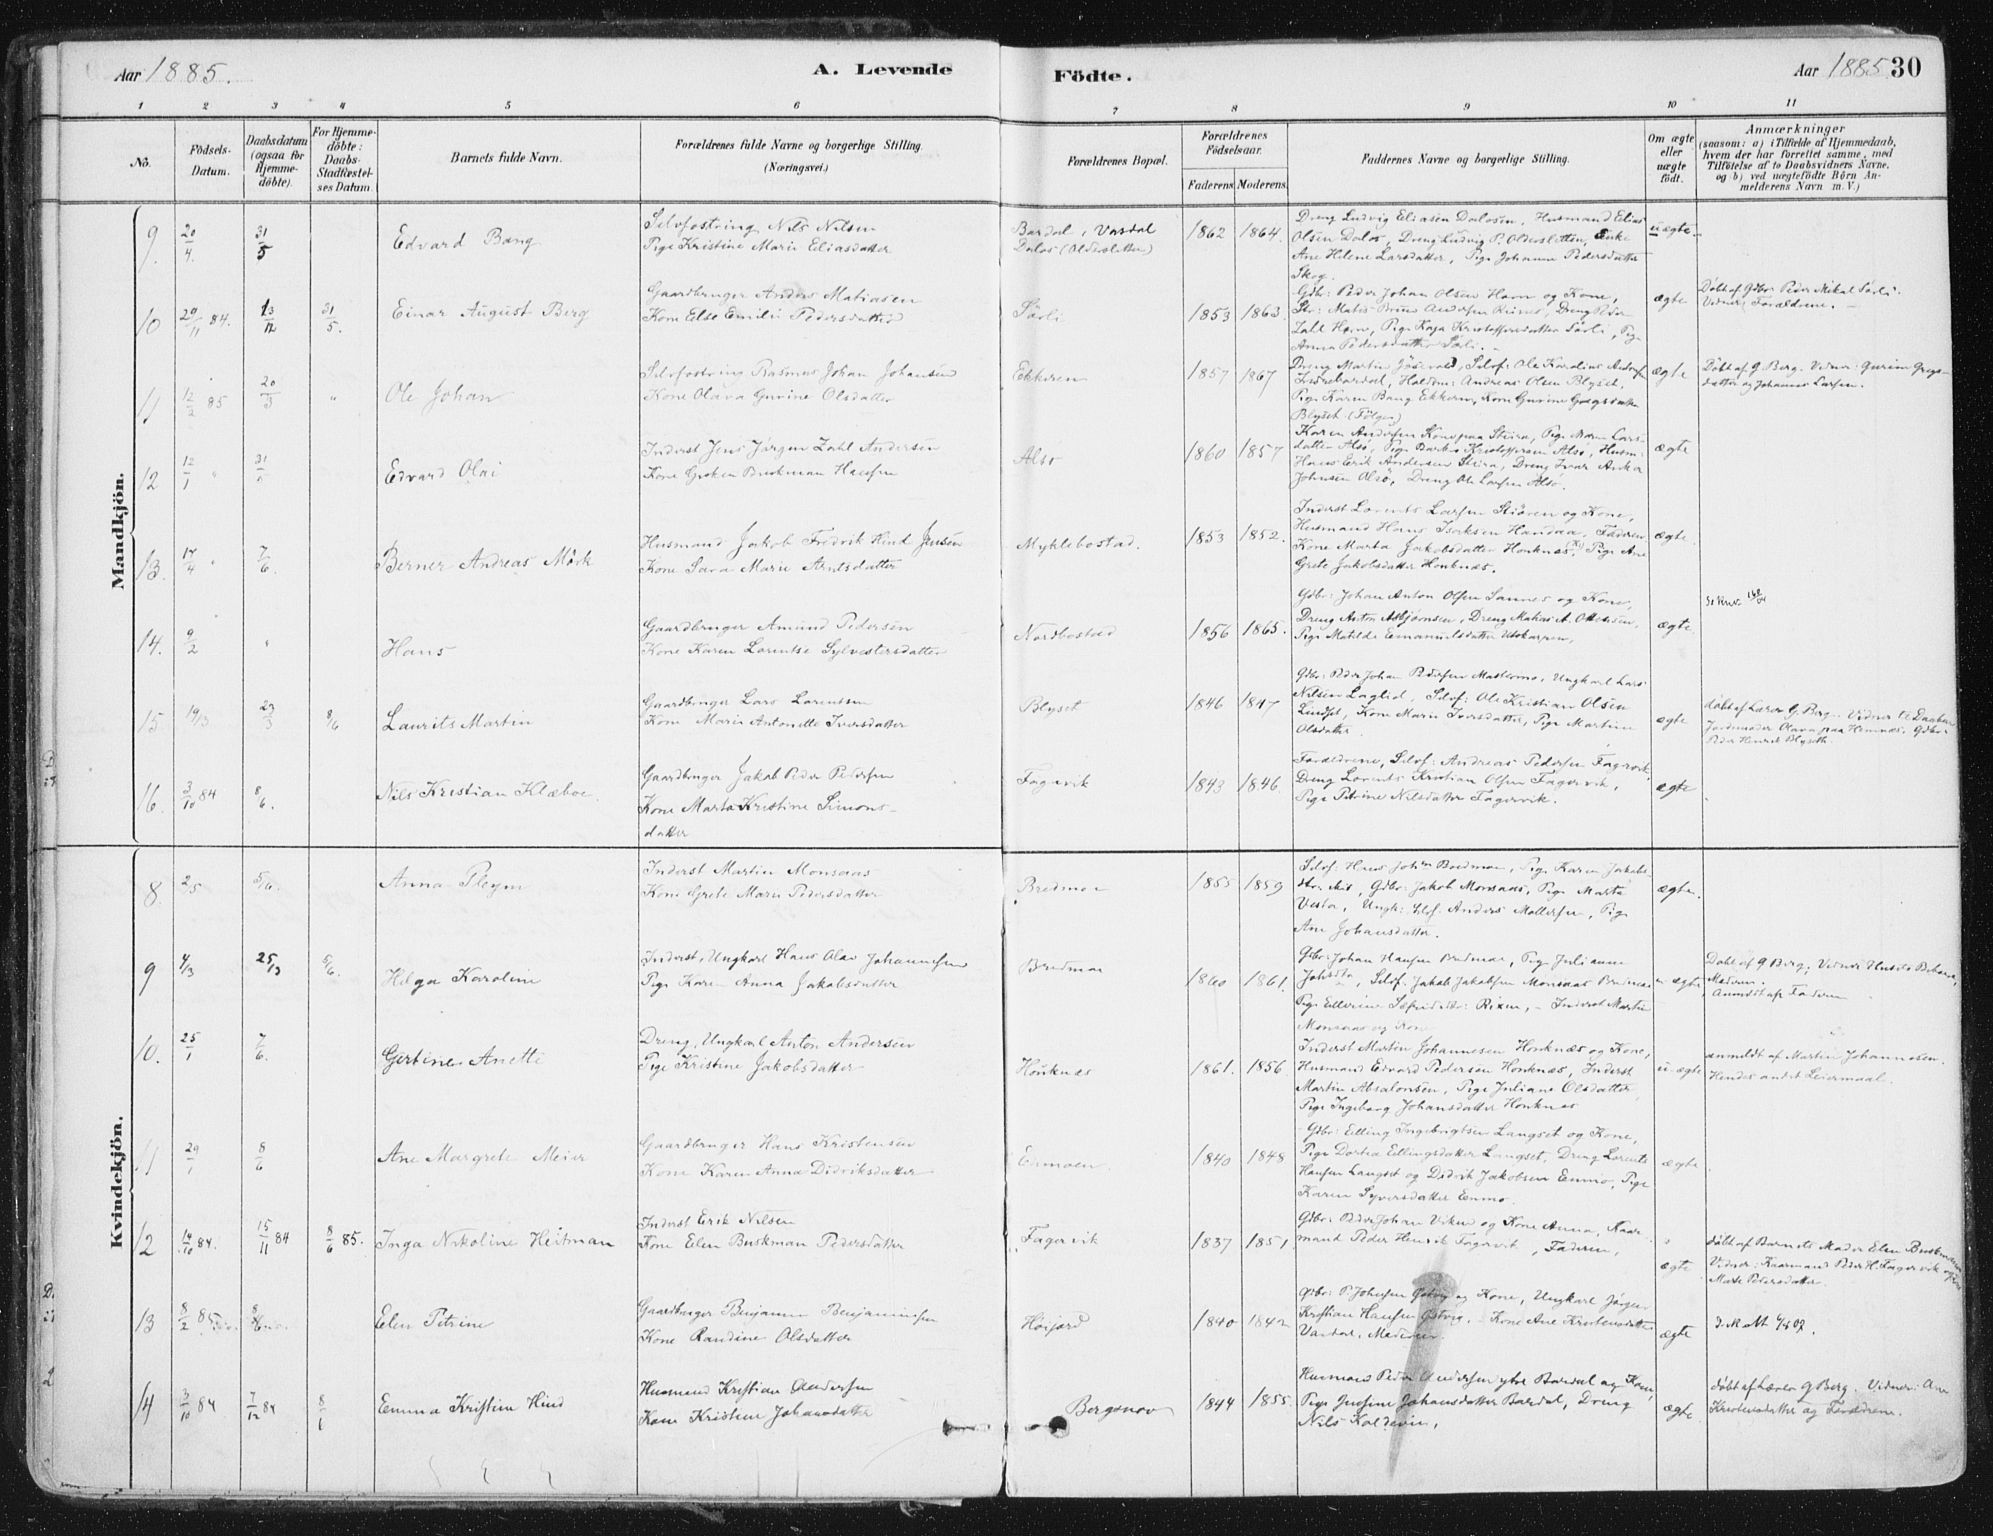 Aar 1885. A. Levende Födte. Aar 1885 30
1 2 3 4 5 6 7 8 9 10 11
No.
Födsels-Datum.
Daabsdatum (ogsaa for Hjemme-döbte).
For Hjemme-döbte: Daabs-Stadfæstel-ses Datum.
Barnets fulde Navn.
Forældrenes fulde Navne og borgerlige Stilling. (Næringsvei.)
Forældrenes Bopæl.
Forældrenes Födselsaar.
Faderens Moderens
Faddernes Navne og borgerlige Stilling.
Om ægte eller uægte födt.
Anmærkninger
(saasom: a) i Tilfælde af Hjemmedaab, hvem der har forrettet samme, med Tilföielse af to Daabsvidners Navne, og b) ved uægtefödte Börn An-melderens Navn m. V.)
Mandkjön.
9. 20/4 31/5 Edvard Bang
Selvfostring Nils Nilsen
Pige Kristine Marie Eliasdatter
Bardal, Vasdal
Dalos (Oldersletten)
1862 1864.
Dreng Ludvig Eliasen Dalosen, Husmand Elias
Olsen Dalos, Dreng Ludvig P. Oldersletten, Enke
Ane Helene Larsdatter, Pige Johanne Pedersdatter
Skog.
uægte
10 29/11 84. 13/12 31/5. Einar August Berg
Gaardbruger Anders Matiasen
Kone Else Emilie Pedersdatter
Sörli
1853 1863.
Gdbr: Peder Johan Olsen Havn og Kone,
Anna Pedersdatter Sörli.
ægte
Döbt af Gdbr. Peder Mikal Sörli.
Vidner: Forældrene.
11 12/2 85 20/3 " Ole Johan
Selvfostring Rasmus Johan Johansen
Kone Olava Gurine Olsdatter
Ekkeren
1857 1867
Indrebardal, Andreas Olsen Blyset.
Pige Karen Bang Ekkeren,
Blyset (Følger)
ægte
Döbt af G. Berg. Vidner: Gurine Gregs-
datter og Johannes Larsen.
12 12/1 " 31/5 Edvard Olai
Inderst Jens Jörgen Zahl Andersen
Kone Buskman Hansen
Alsö
1860 1857
Hans Erik Andersen Stira, Dreng Ivar Anker
Johnsen Alsö, Dreng Ole Larsen Alsö.
ægte
13. 17/4 " 7/6. Berner Andreas Mörk
Husmand Jakob Fredrik Hind Jensen
Kone Sara Marie Arntsdatter
Myklebostad.
1853 1852.
Inderst Lorents Larsen Stiören og Kone,
Husmand Hans Isaksen Handaa, Faderen,
Kone Marta Jakobsdatter Honknæs, Pige Ane
Grete Jakobsdatter Honknæs.
ægte.
14. 9/2 " Hans
Gaardbruger Amund Pedersen
Kone Karen Lorentse Sylvestersdatter
Nordbostad
1856 1865.
Gdbr: Johan Anton Olsen Sannes og Kone,
Dreng Anton Asbjörnsen, Dreng Matias A. Ottesen,
Pige Matilde Emanuelsdatter Utskarpen,
ægte
15 19/3 29/3 8/6 Laurits Martin
Gaardbruger Lars Larentsen
Kone Marie Antonette Iversdatter
Blyset
1846 1847
Gdbr: Peder Johan Pedersen, Ungkarl Lars
Nilsen Laglid, Selvf: Ole Kristian Olsen
Lindset, Kone Marie Iversdatter, Pige Martine
Olsdatter
ægte
döbt af Lærer G. Berg. Vidner til Daaben
Jordemoder Olava paa Hemnæs. Gdbr.
Peder Henrik Blyseth.
16. 3/10 84 8/6. Nils Kristian Klæboe.
Gaardbruger Jakob Peder Pedersen
Kone Marta Kristine Simons-
datter
Fagervik
1843 1846.
Forældrene, Selvf: Andreas Pedersen Fagervik,
Dreng Lorents Kristian Olsen Fagervik,
Pige Petrine Nilsdatter Fagervik.
ægte
Kvindekjön.
8 2/5 5/6. Anna Pleym
Inderst Martin Monsaas
Kone Grete Marie Pedersdatter
Bredmoe
1855 1859
Selvf. Hans Joh:en Bredmoe, Pige Karen Jakobs-
Gdbr: Jakob Monsaas, Pige Marta
Vesta, Ungk: Selvf: Anders Mollersen, Pige
Ane Johansdatter.
ægte.
9 4/3 25/3 5/6. Helga Karoline
Inderst, Ungkarl Hans Olav Johannesen
Pige Karen Anna Jakobsdatter
Bredmoe
1860 1861.
Gdbr: Johan Hansen Bredmoe, Pige Julianne
Johsdtr, Selvf. Jakob Jakobsen Monsaas Bredmoe
Pige Ellerine Sefridsdtr: Inderst Martin
Monsaas og Kone
u-ægte
Döbt af G. Berg; Vidner
Moderen.
Anmeldt af Faderen
10. 25/1 7/6. Gertine Anette
Dreng, Ungkarl Anton Andersen
Pige Kristine Jakobsdatter
Honknæs
1861. 1856
Inderst Martin Johannesen Honknæs og Kone,
Husmand Edvard Pedersen Honknæs, Inderst
Martin Absalonsen, Pige Juliane Olsdatter,
Pige Ingeborg Johansdatter Honknæs
u-ægte
anmeldt af Martin Johannesen.
Hendes andet Leiermaal.
11 29/1 8/6 Ane Margrete Meier
Gaardbruger Hans Kristensen
Kone Karen Anna Didriksdatter
Enmoen
1840 1848
Gdbr: Elling Ingebrigtsen Langset og Kone,
Pige Dortea Ellingsdatter Langset, Dreng Lorents
Hansen Langset og Didrik Jakobsen Enmo, Pige
Karen Syversdatter Enmo.
ægte
12 14/10 84. 15/11 84 8/6 85. Inga Nikoline Heitman
Inderst Erik Nilsen
Kone Elen Buskman Pedersdatter
Fagervik
1837 1851.
Gdbr: Peder Johan Vikud og Kone Anna, Kaar-
mand Peder Henrik Fagervik, Faderen,
ægte
döbt af Barnets Moder Elen Buskman
Vidner: Kaarmand Peder H. Fagervik og Kone
Marte Pedersdatter.
13 8/2 85 8/6 Elen Petrine
Gaardbruger Benjamin Benjaminsen
Kone Randine Olsdatter
Höijord
1840 1842
Gdbr: P. Johnsen og Kone, Ungkarl Jörgen
Kristian Hansen, Kone Ane Kristensdatter
Moderen.
ægte
14 3/10 84. 7/12 84 8/1 Emma Kristine Hind
Husmand Kristian Andersen
Kone Kristine Johansdatter
Bergsnov
1844 1855.
Husmand Peder Andersen ytre Bardal og Kone,
Pige Jensine Johansdatter Bardal, Dreng
Nils Koldevin,
ægte
döbt af Lærer G Berg. Vidner: Ane
Kristensdatter og Forældrene.